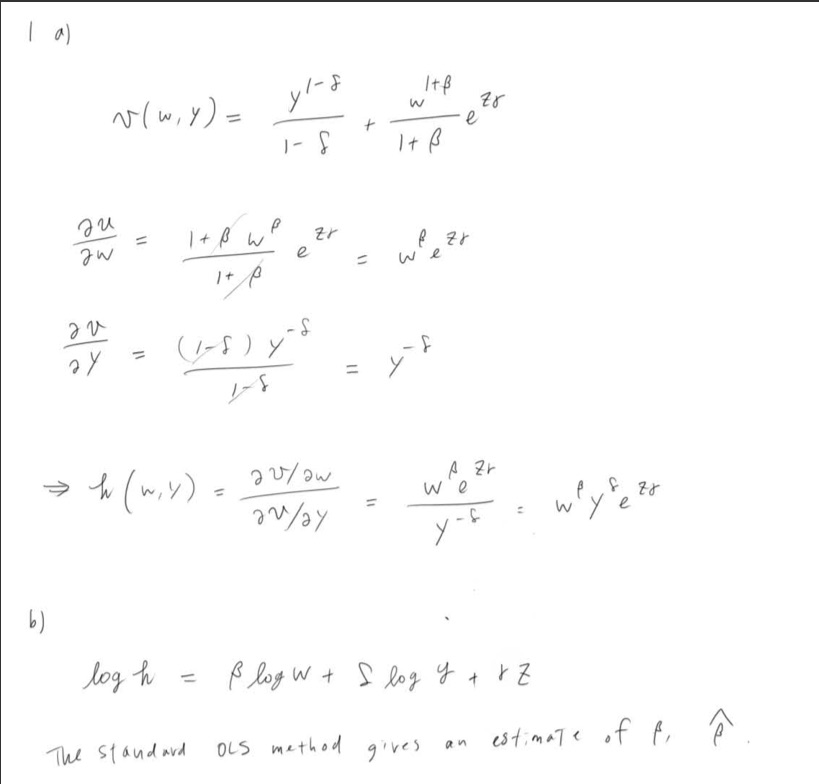 1 a)
v(w, y) = y^{1-δ} / 1-δ + w^{1+β} / 1+β e^{zγ}
∂u/∂w = 1+β w^β e^{zγ} / 1+β = w^β e^{zγ}
∂v/∂y = (1-δ) y^{-δ} / 1-δ = y^{-δ}
⇒ h(w, y) = ∂v/∂w / ∂v/∂y = w^β e^{zγ} / y^{-δ} = w^β y^δ e^{zγ}
b)
log h = β log w + δ log y + γ z
The standard OLS method gives an estimate of β, β̂.